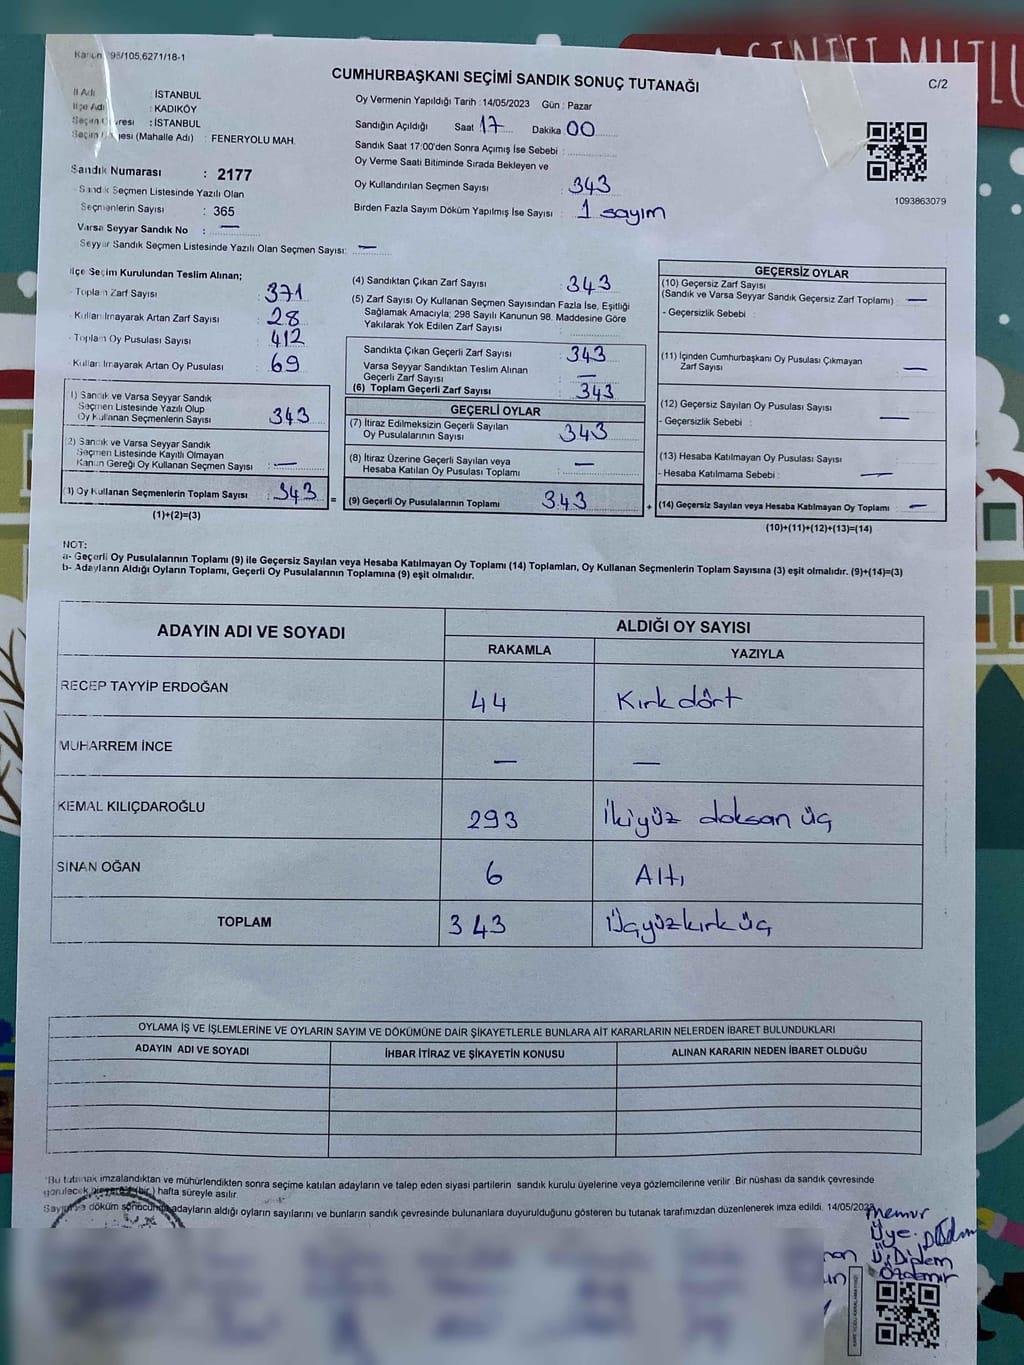 SENİNLE MUTLU
Kanun 298/105,6271/18-1
CUMHURBAŞKANI SEÇİMİ SANDIK SONUÇ TUTANAĞI
C/2
İl Adı : İSTANBUL
İlçe Adı : KADIKÖY
Seçim Çevresi : İSTANBUL
Seçim Bölgesi (Mahalle Adı) : FENERYOLU MAH.
Oy Vermenin Yapıldığı Tarih : 14/05/2023 Gün : Pazar
Sandığın Açıldığı Saat 17 Dakika 00
Sandık Saat 17:00'den Sonra Açımış İse Sebebi :
Oy Verme Saati Bitiminde Sırada Bekleyen ve
Oy Kullandırılan Seçmen Sayısı 343
Birden Fazla Sayım Döküm Yapılmış İse Sayısı : 1 sayım
1093863079
Sandık Numarası : 2177
Sandık Seçmen Listesinde Yazılı Olan
Seçmenlerin Sayısı : 365
Varsa Seyyar Sandık No : —
Seyyar Sandık Seçmen Listesinde Yazılı Olan Seçmen Sayısı: —
İlçe Seçim Kurulundan Teslim Alınan;
- Toplam Zarf Sayısı : 371
- Kullanılmayarak Artan Zarf Sayısı : 28
- Toplam Oy Pusulası Sayısı : 412
- Kullanılmayarak Artan Oy Pusulası : 69
1) Sandık ve Varsa Seyyar Sandık
Seçmen Listesinde Yazılı Olup
Oy Kullanan Seçmenlerin Sayısı : 343
(2) Sandık ve Varsa Seyyar Sandık
Seçmen Listesinde Kayıtlı Olmayan
Kanun Gereği Oy Kullanan Seçmen Sayısı : —
) Oy Kullanan Seçmenlerin Toplam Sayısı : 343 =
(1)+(2)=(3)
(4) Sandıktan Çıkan Zarf Sayısı : 343
(5) Zarf Sayısı Oy Kullanan Seçmen Sayısından Fazla İse, Eşitliği
Sağlamak Amacıyla; 298 Sayılı Kanunun 98. Maddesine Göre
Yakılarak Yok Edilen Zarf Sayısı :
Sandıkta Çıkan Geçerli Zarf Sayısı : 343
Varsa Seyyar Sandıktan Teslim Alınan
Geçerli Zarf Sayısı : —
(6) Toplam Geçerli Zarf Sayısı : 343
GEÇERLİ OYLAR
(7) İtiraz Edilmeksizin Geçerli Sayılan
Oy Pusulalarının Sayısı : 343
(8) İtiraz Üzerine Geçerli Sayılan veya
Hesaba Katılan Oy Pusulası Toplamı : —
(9) Geçerli Oy Pusulalarının Toplamı 343 +
GEÇERSİZ OYLAR
(10) Geçersiz Zarf Sayısı
(Sandık ve Varsa Seyyar Sandık Geçersiz Zarf Toplamı) : —
- Geçersizlik Sebebi :
(11) İçinden Cumhurbaşkanı Oy Pusulası Çıkmayan
Zarf Sayısı : —
(12) Geçersiz Sayılan Oy Pusulası Sayısı
- Geçersizlik Sebebi : —
(13) Hesaba Katılmayan Oy Pusulası Sayısı
- Hesaba Katılmama Sebebi : —
(14) Geçersiz Sayılan veya Hesaba Katılmayan Oy Toplamı : —
(10)+(11)+(12)+(13)=(14)
NOT:
a- Geçerli Oy Pusulalarının Toplamı (9) ile Geçersiz Sayılan veya Hesaba Katılmayan Oy Toplamı (14) Toplamları, Oy Kullanan Seçmenlerin Toplam Sayısına (3) eşit olmalıdır. (9)+(14)=(3)
b- Adayların Aldığı Oyların Toplamı, Geçerli Oy Pusulalarının Toplamına (9) eşit olmalıdır.
ADAYIN ADI VE SOYADI
ALDIĞI OY SAYISI
RAKAMLA YAZIYLA
RECEP TAYYİP ERDOĞAN 44 Kırk dört
MUHARREM İNCE — —
KEMAL KILIÇDAROĞLU 293 İkiyüz doksan üç
SİNAN OĞAN 6 Altı
TOPLAM 343 Üçyüzkırküç
OYLAMA İŞ VE İŞLEMLERİNE VE OYLARIN SAYIM VE DÖKÜMÜNE DAİR ŞİKAYETLERLE BUNLARA AİT KARARLARIN NELERDEN İBARET BULUNDUKLARI
ADAYIN ADI VE SOYADI İHBAR İTİRAZ VE ŞİKAYETİN KONUSU ALINAN KARARIN NEDEN İBARET OLDUĞU
*Bu tutanak imzalandıktan ve mühürlendikten sonra seçime katılan adayların ve talep eden siyasi partilerin sandık kurulu üyelerine veya gözlemcilerine verilir. Bir nüshası da sandık çevresinde
görülecek bir yere (bir) hafta süreyle asılır.
Sayım ve döküm sonucunda adayların aldığı oyların sayılarını ve bunların sandık çevresinde bulunanlara duyurulduğunu gösteren bu tutanak tarafımızdan düzenlenerek imza edildi. 14/05/2023
Memur
Üye
Ü. Diplem
Özdemir